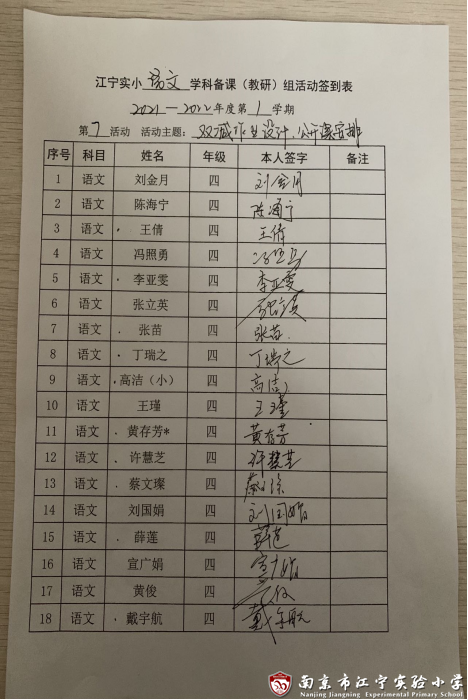 江宁实小 语文 学科备课（教研）组活动签到表
2021—2022年度第1学期
第7活动 活动主题：双减作业设计，公开课安排
序号 科目 姓名 年级 本人签字 备注
1 语文 刘金月 四 刘金月
2 语文 陈海宁 四 陈海宁
3 语文 王倩 四 王倩
4 语文 冯照勇 四
5 语文 李亚雯 四 李亚雯
6 语文 张立英 四
7 语文 张苗 四 张苗
8 语文 丁瑞之 四 丁瑞之
9 语文 高洁（小） 四 高洁
10 语文 王瑾 四 王瑾
11 语文 黄存芳* 四 黄存芳
12 语文 许慧芝 四 许慧芝
13 语文 蔡文璨 四
14 语文 刘国娟 四 刘国娟
15 语文 薛莲 四 薛莲
16 语文 宣广娟 四 宣广娟
17 语文 黄俊 四
18 语文 戴宇航 四 戴宇航
南京市江宁实验小学
Nanjing Jiangning Experimental Primary School